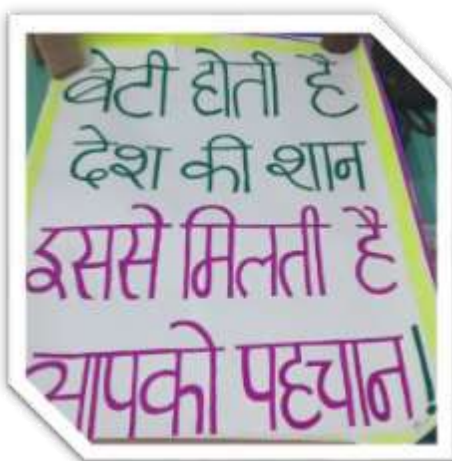 बेटी होती है
देश की शान
इससे मिलती है
आपको पहचान!